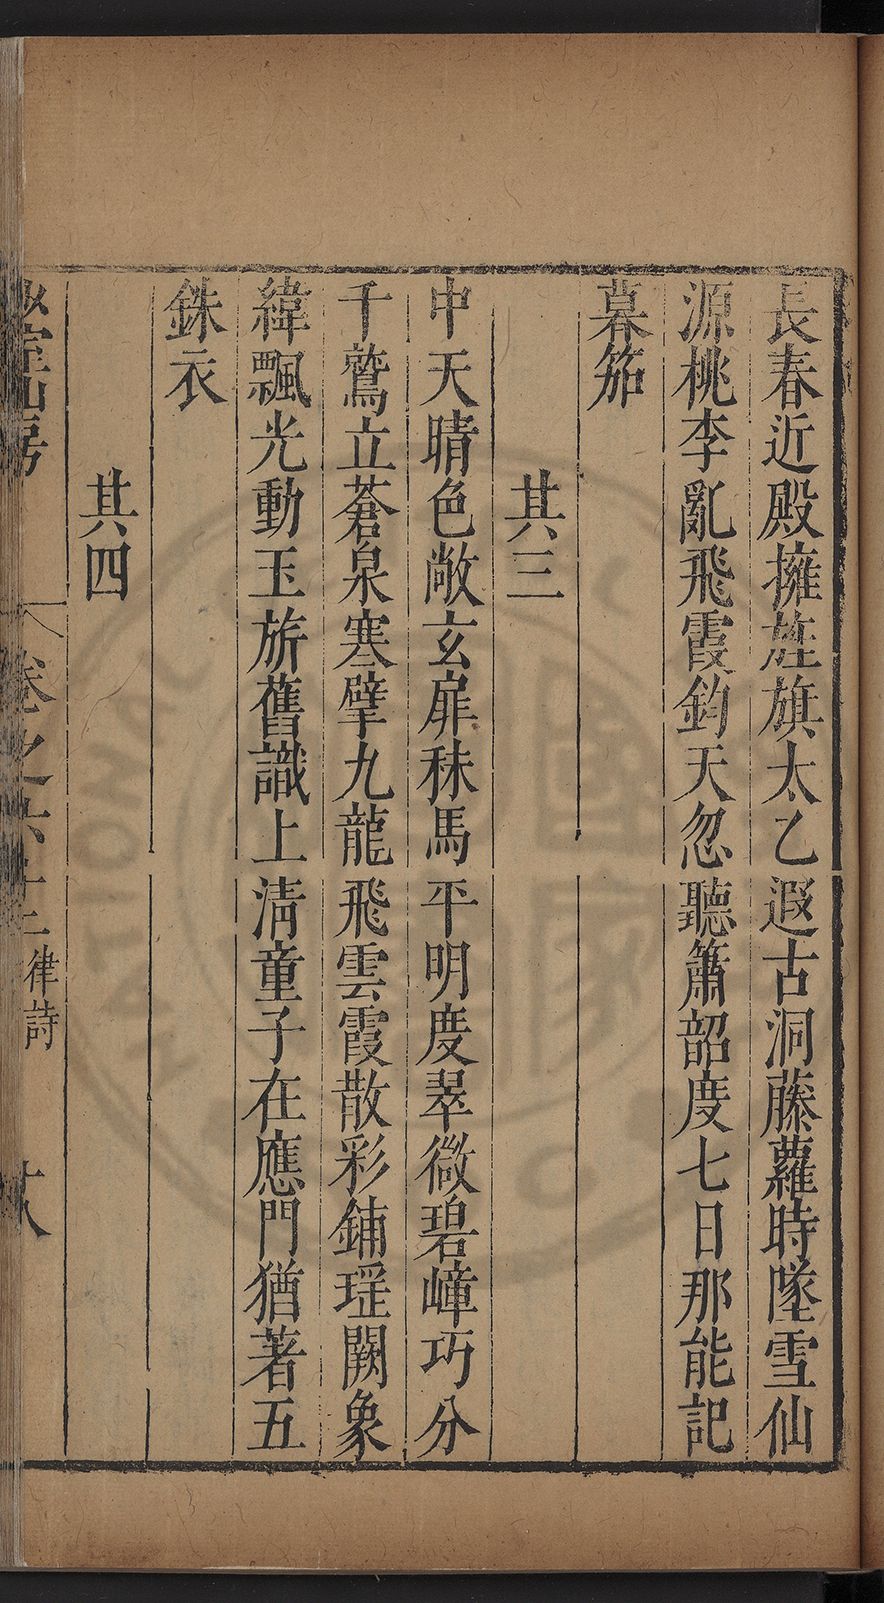 長春近殿擁旌旗太乙遐古洞藤蘿時墜雪仙
源桃李亂飛霞鈞天忽聽簫韶度七日那能記
暮笳
其三
中天晴色敞玄扉秣馬平明度翠微碧嶂巧分
千鷲立蒼泉寒擘九龍飛雲霞散彩鋪瑶闕象
緯飄光動玉旂舊識上清童子在應門猶著五
銖衣
其四
室山房
卷之六十三
律詩
十八